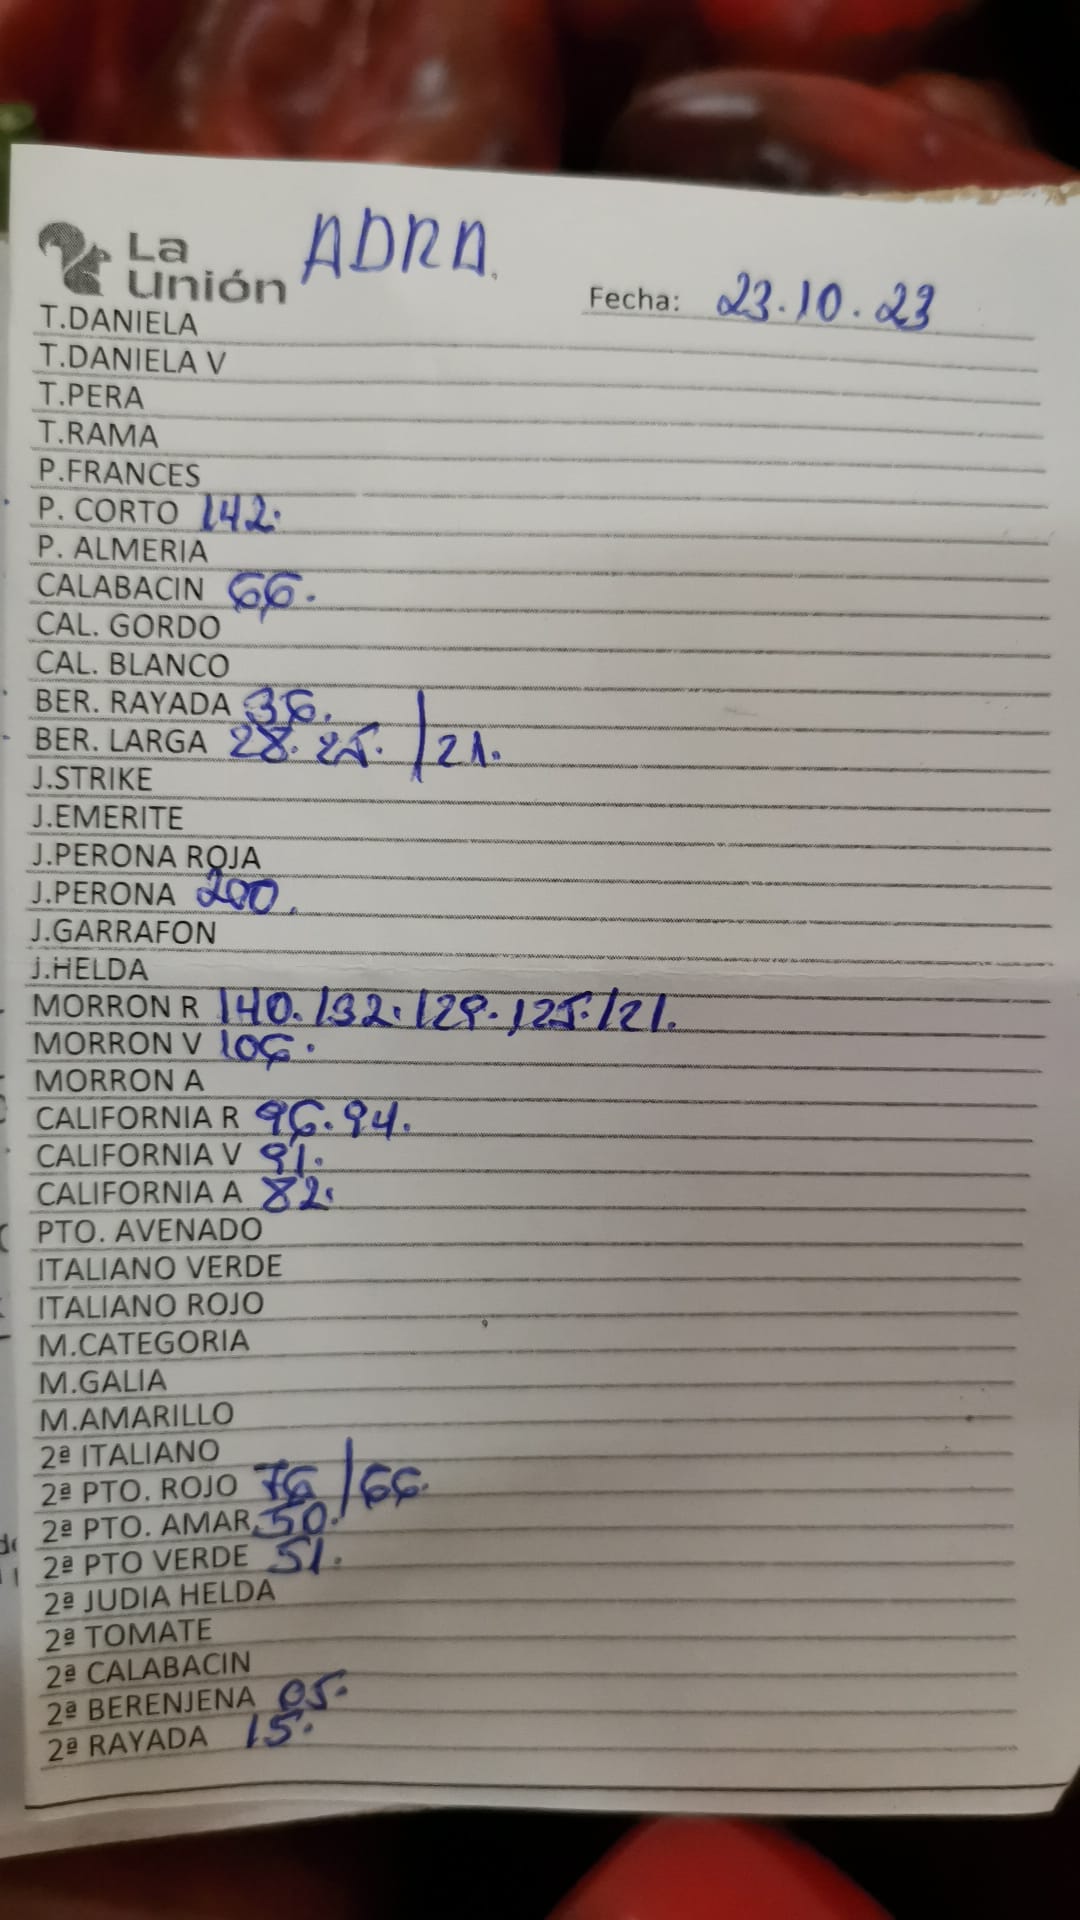 La
Unión
ADRA.
Fecha: 23.10.23
T.DANIELA
T.DANIELA V
T.PERA
T.RAMA
P.FRANCES
P. CORTO 142.
P. ALMERIA
CALABACIN 66.
CAL. GORDO
CAL. BLANCO
BER. RAYADA 36.
BER. LARGA 28. 25. / 21.
J.STRIKE
J.EMERITE
J.PERONA ROJA
J.PERONA 200.
J.GARRAFON
J.HELDA
MORRON R 140. 132. 129. 125. 121.
MORRON V 106.
MORRON A
CALIFORNIA R 96. 94.
CALIFORNIA V 91.
CALIFORNIA A 82.
PTO. AVENADO
ITALIANO VERDE
ITALIANO ROJO
M.CATEGORIA
M.GALIA
M.AMARILLO
2ª ITALIANO
2ª PTO. ROJO 76 / 66.
2ª PTO. AMAR. 50.
2ª PTO VERDE 51.
2ª JUDIA HELDA
2ª TOMATE
2ª CALABACIN
2ª BERENJENA 05.
2ª RAYADA 15.